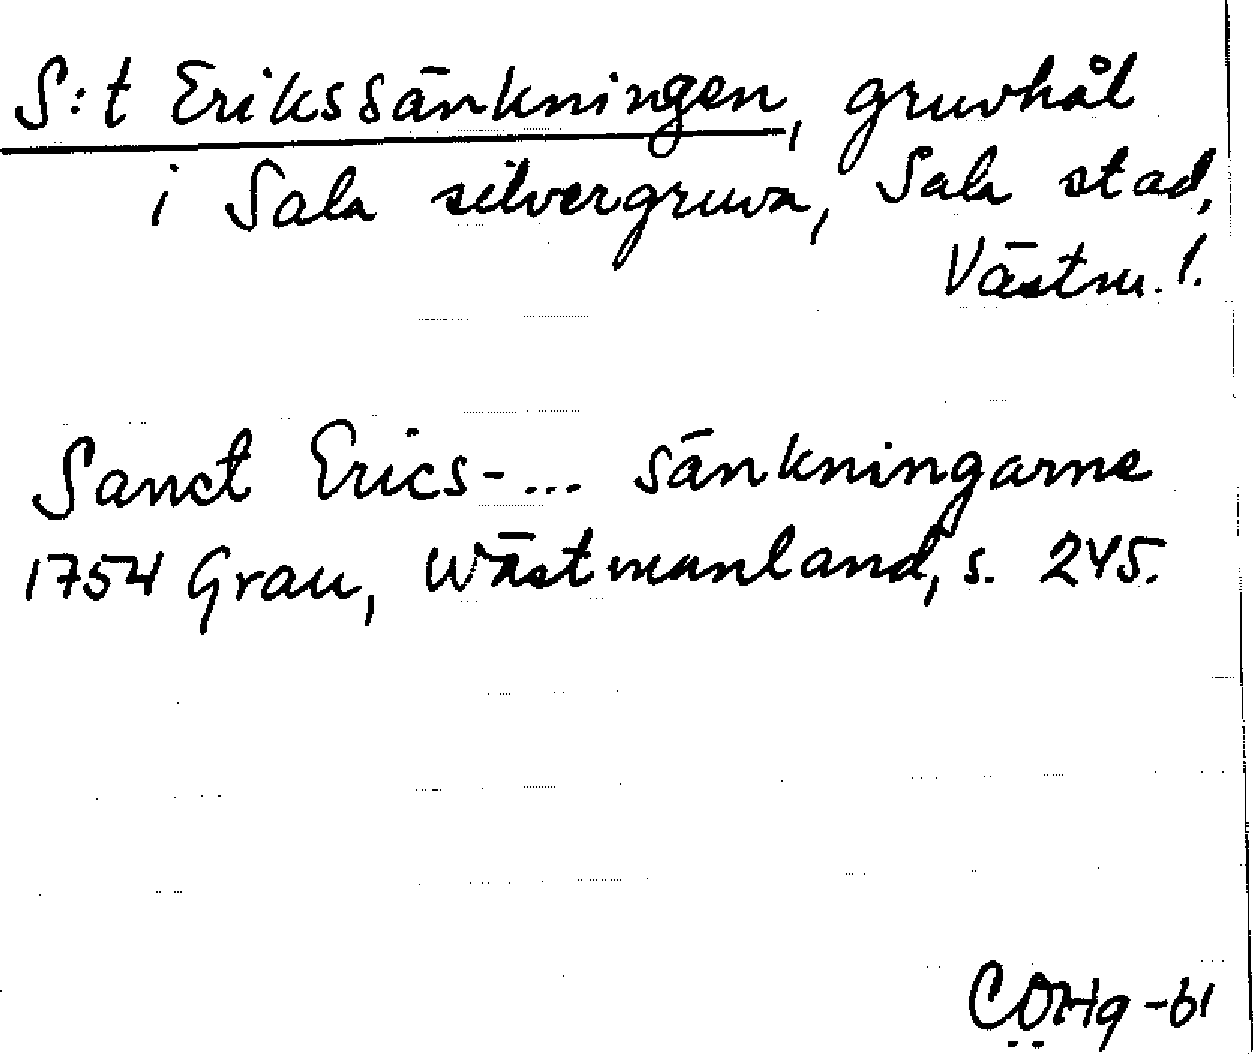 S:t Erikssänkningen, gruvhål
i Sala silvergruva, Sala stad,
Västm. l.
Sanct Erics-... sänkningarne
1754 Grau, Wästmanland, s. 245.
CÖHg -61